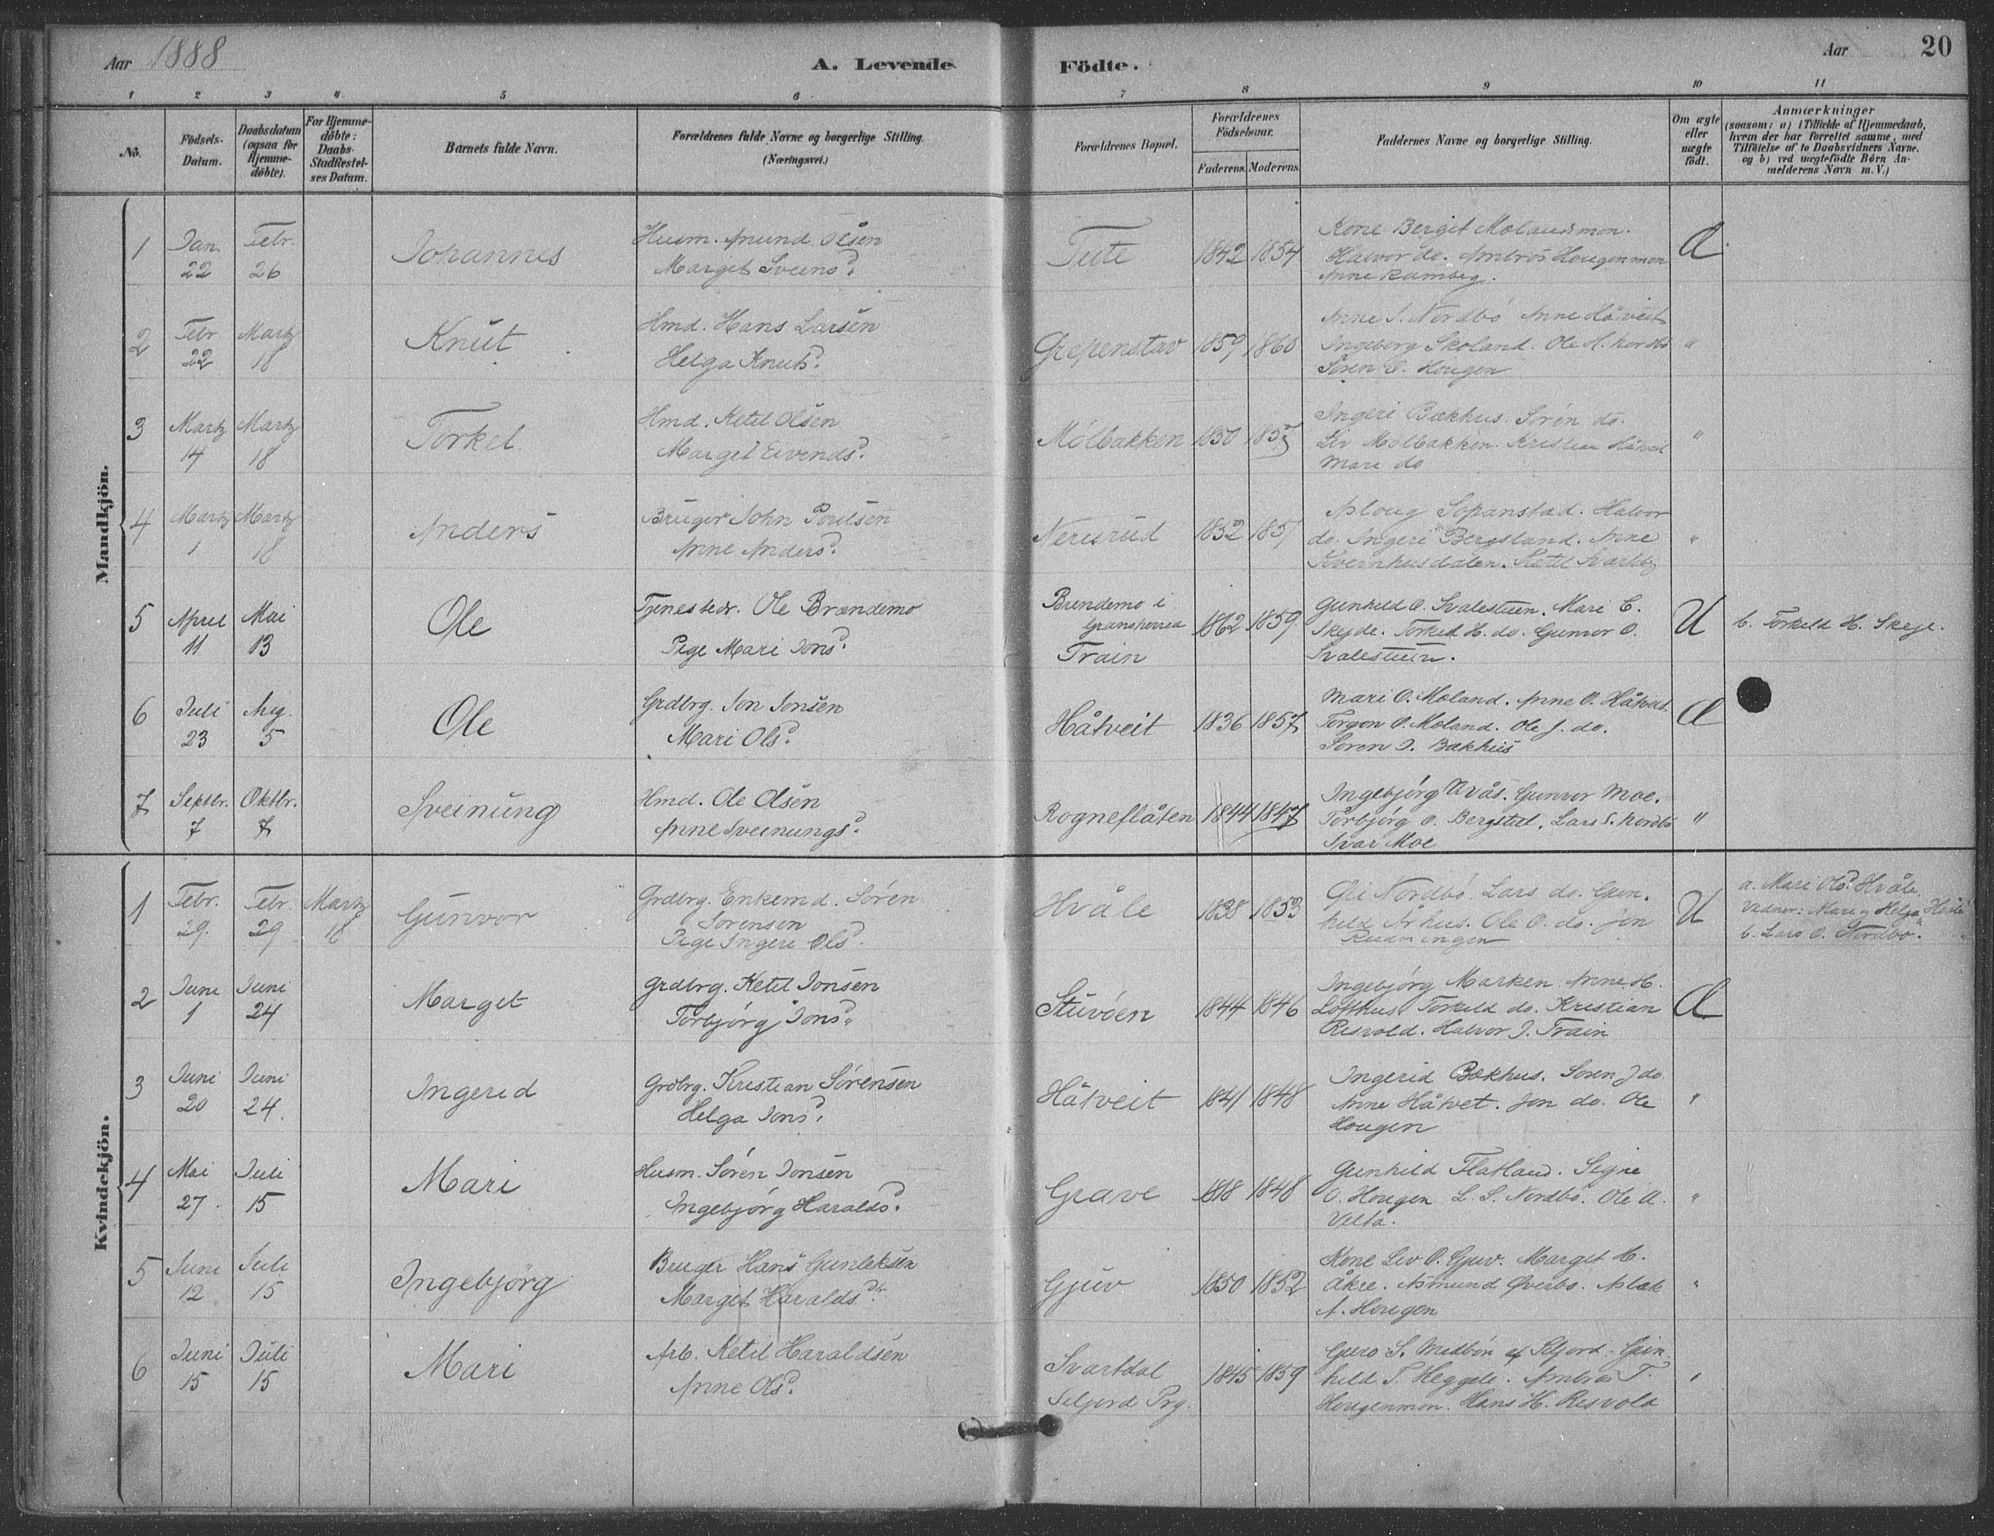 Aar 1888
A. Levende Födte.
Aar 20
1 2 3 4 5 6 7 8 9 10 11
No.
Födsels-
Datum.
Daabsdatum
(ogsaa for
Hjemme-
döbte).
For Hjemme-
döbte:
Daabs-
Stadfæstel-
ses Datum.
Barnets fulde Navn.
Forældrenes fulde Navne og borgerlige Stilling.
(Næringsvei.)
Forældrenes Bopæl.
Forældrenes
Födselsaar.
Faderens. Moderens.
Faddernes Navne og borgerlige Stilling.
Om ægte
eller
uægte
födt.
Anmærkninger
(saasom: a) i Tilfælde af Hjemmedaab,
hvem der har forrettet samme, med
Tilföielse af to Daabsvidners Navne,
og b) ved uægtefödte Börn An-
melderens Navn m. V.)
Mandkjön.
1
Jan.
22
Febr.
26
Johannes
Husm. Anund Olsen
Marget Sveinsd.
Tute
1842 1854
Kone Bergit Molandsmon.
Halvor do. Ambros Hougenmon
Anne Ramberg.
Æ
2
Febr
22
Martz
18
Knut
Hmd. Hans Larsen
Helga Knutsd.
Grepenstav
1859 1860
Anne S. Nordbö Anne Håtveit
Ingeborg Skoland. Ole H. Nordbö
Sören O. Hougen
"
3
Martz
14
Martz
18
Torkel
Hmd. Ketil Olsen
Marget Eivendsd.
Mölbakken
1850 1857
Ingeri Bakhus. Sörén do.
Liv Mölbakken. Kristian Håtveit
Mari do
"
4
Martz
1
Martz
18
Anders
Bruger John Poulsen
Anne Andersd.
Nerisrud
1852 1857
Asloug Sopanstad. Halvor
do. Ingeri Bergsland. Anne
Kvernhusdalen. Ketil
"
5
April
11
Mai
13
Ole
Tjenestedr. Ole Brændemo
Pige Mari Jonsd.
Brendemo i
Gransherred
Train
1862 1859
Gunhild O. Svalestuen. Mari C.
Skejde. Torkild H. do. Gunvor O.
Svalestuen.
U
b. Torkild H. Skeje.
6
Juli
23
Aug.
5
Ole
Grdbrg. Jon Jonsen
Mari Olsd.
Håtveit
1836 1857
Mari O. Moland. Anne O. Håtveit.
Torgon O. Moland. Ole J. do.
Soren J. Bakhus
Æ
7
Septbr.
7
Oktbr.
7
Sveinung
Hmd. Ole Olsen
Anne Sveinungsd.
Rogneflåten
1844 1847
Ingebjörg Århus. Gunvor Moe.
Torbjörg O. Bergstul. Lars S. Nordbö
Ivar Moe
"
Kvindekjön.
1
Febr.
29.
Febr.
29
Martz
18
Gunvor
Grdbrg. Enkemd. Sören
Sörensen
Pige Ingeri Olsd.
Hvåle
1838 1853
Gri Nordbö Lars do. Gun-
hild Århus. Ole O. do. Jon
Rudningen
U
a. Mari Olsd. Hvåle
Vidner: Mari og Helga
b. Lars O. Nordbö.
2
Juni
1
Juni
24
Marget
Grdbrg. Ketil Jonsen
Torbjörg Jonsd.
Stuvöen
1844 1846
Ingebjörg Marken. Anne H.
Lofthus Torkild do. Kristian
Resvold. Halvor J. Train
Æ
3
Juni
20
Juni
24.
Ingerid
Grdbrg. Kristian Sörensen
Helga Jonsd.
Håtveit
1841 1848
Ingerid Bakhus. Soren J do.
Anne Håtvet. Jon do. Ole
Hougen
"
4
Mai
27.
Juli
15
Mari
Husm. Sören Jonsen
Ingebjörg Haraldsd.
Grave
1818 1848
Gunhild Flatland. Signe
O. Hougen L. S. Nordbö. Ole A.
Velta.
"
5
Juni
12
Juli
15
Ingebjörg
Bruger Hans Gunleksen
Marget Haraldsdtr.
Gjuv
1850 1852
Kone Liv O. Gjuv. Marget H.
Åkre. Asmund Överbö. Aslak
A. Hougen
"
6
Juni
15
Juli
15
Mari
Arb. Ketil Haraldsen
Anne Olsd.
Svartdal
Seljord Prg.
1845 1859
Guro S. Midbön af Seljord. Gun-
hild T. Heggeli. Ambros T.
Hougenmon. Hans H. Resvold
"